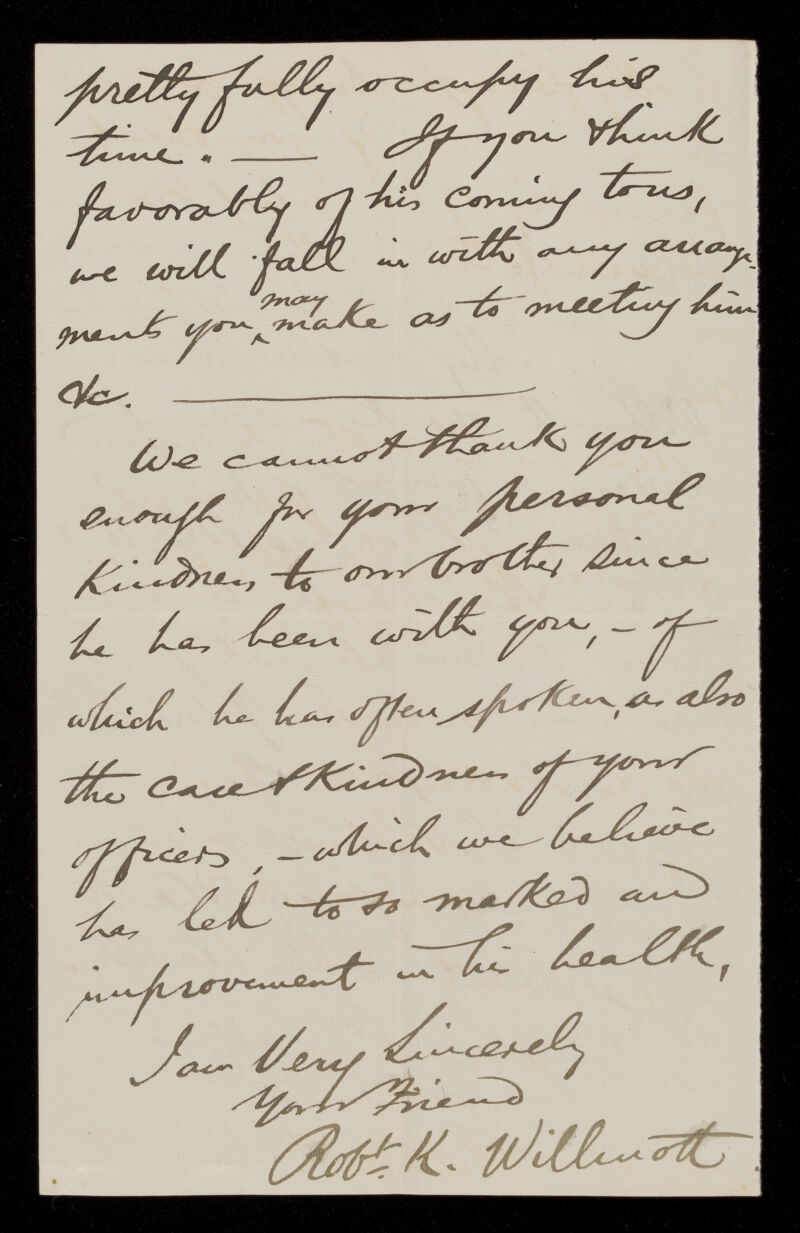 pretty fully occupy his
time. — If you think
favorably of his coming to us,
we will fall in with any arrange-
ments you may make as to meeting him
&c. —
We cannot thank you
enough for your personal
kindness to our brother since
he has been with you, – of
which he has often spoken, as also
the care & kindness of your
officers, – which we believe
has led to so marked an
improvement in his health,
I am Very Sincerely
Your Friend
Robt. K. Willmott